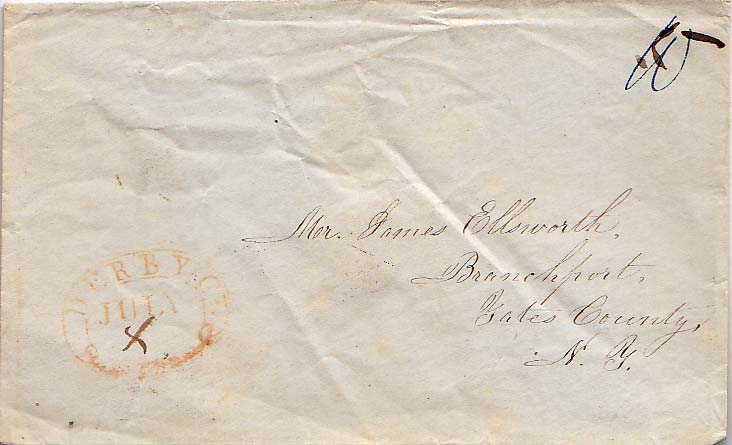 10
Mr. James Ellsworth,
Branchport,
Yates County,
N. Y.
DERBY CT.
JULY